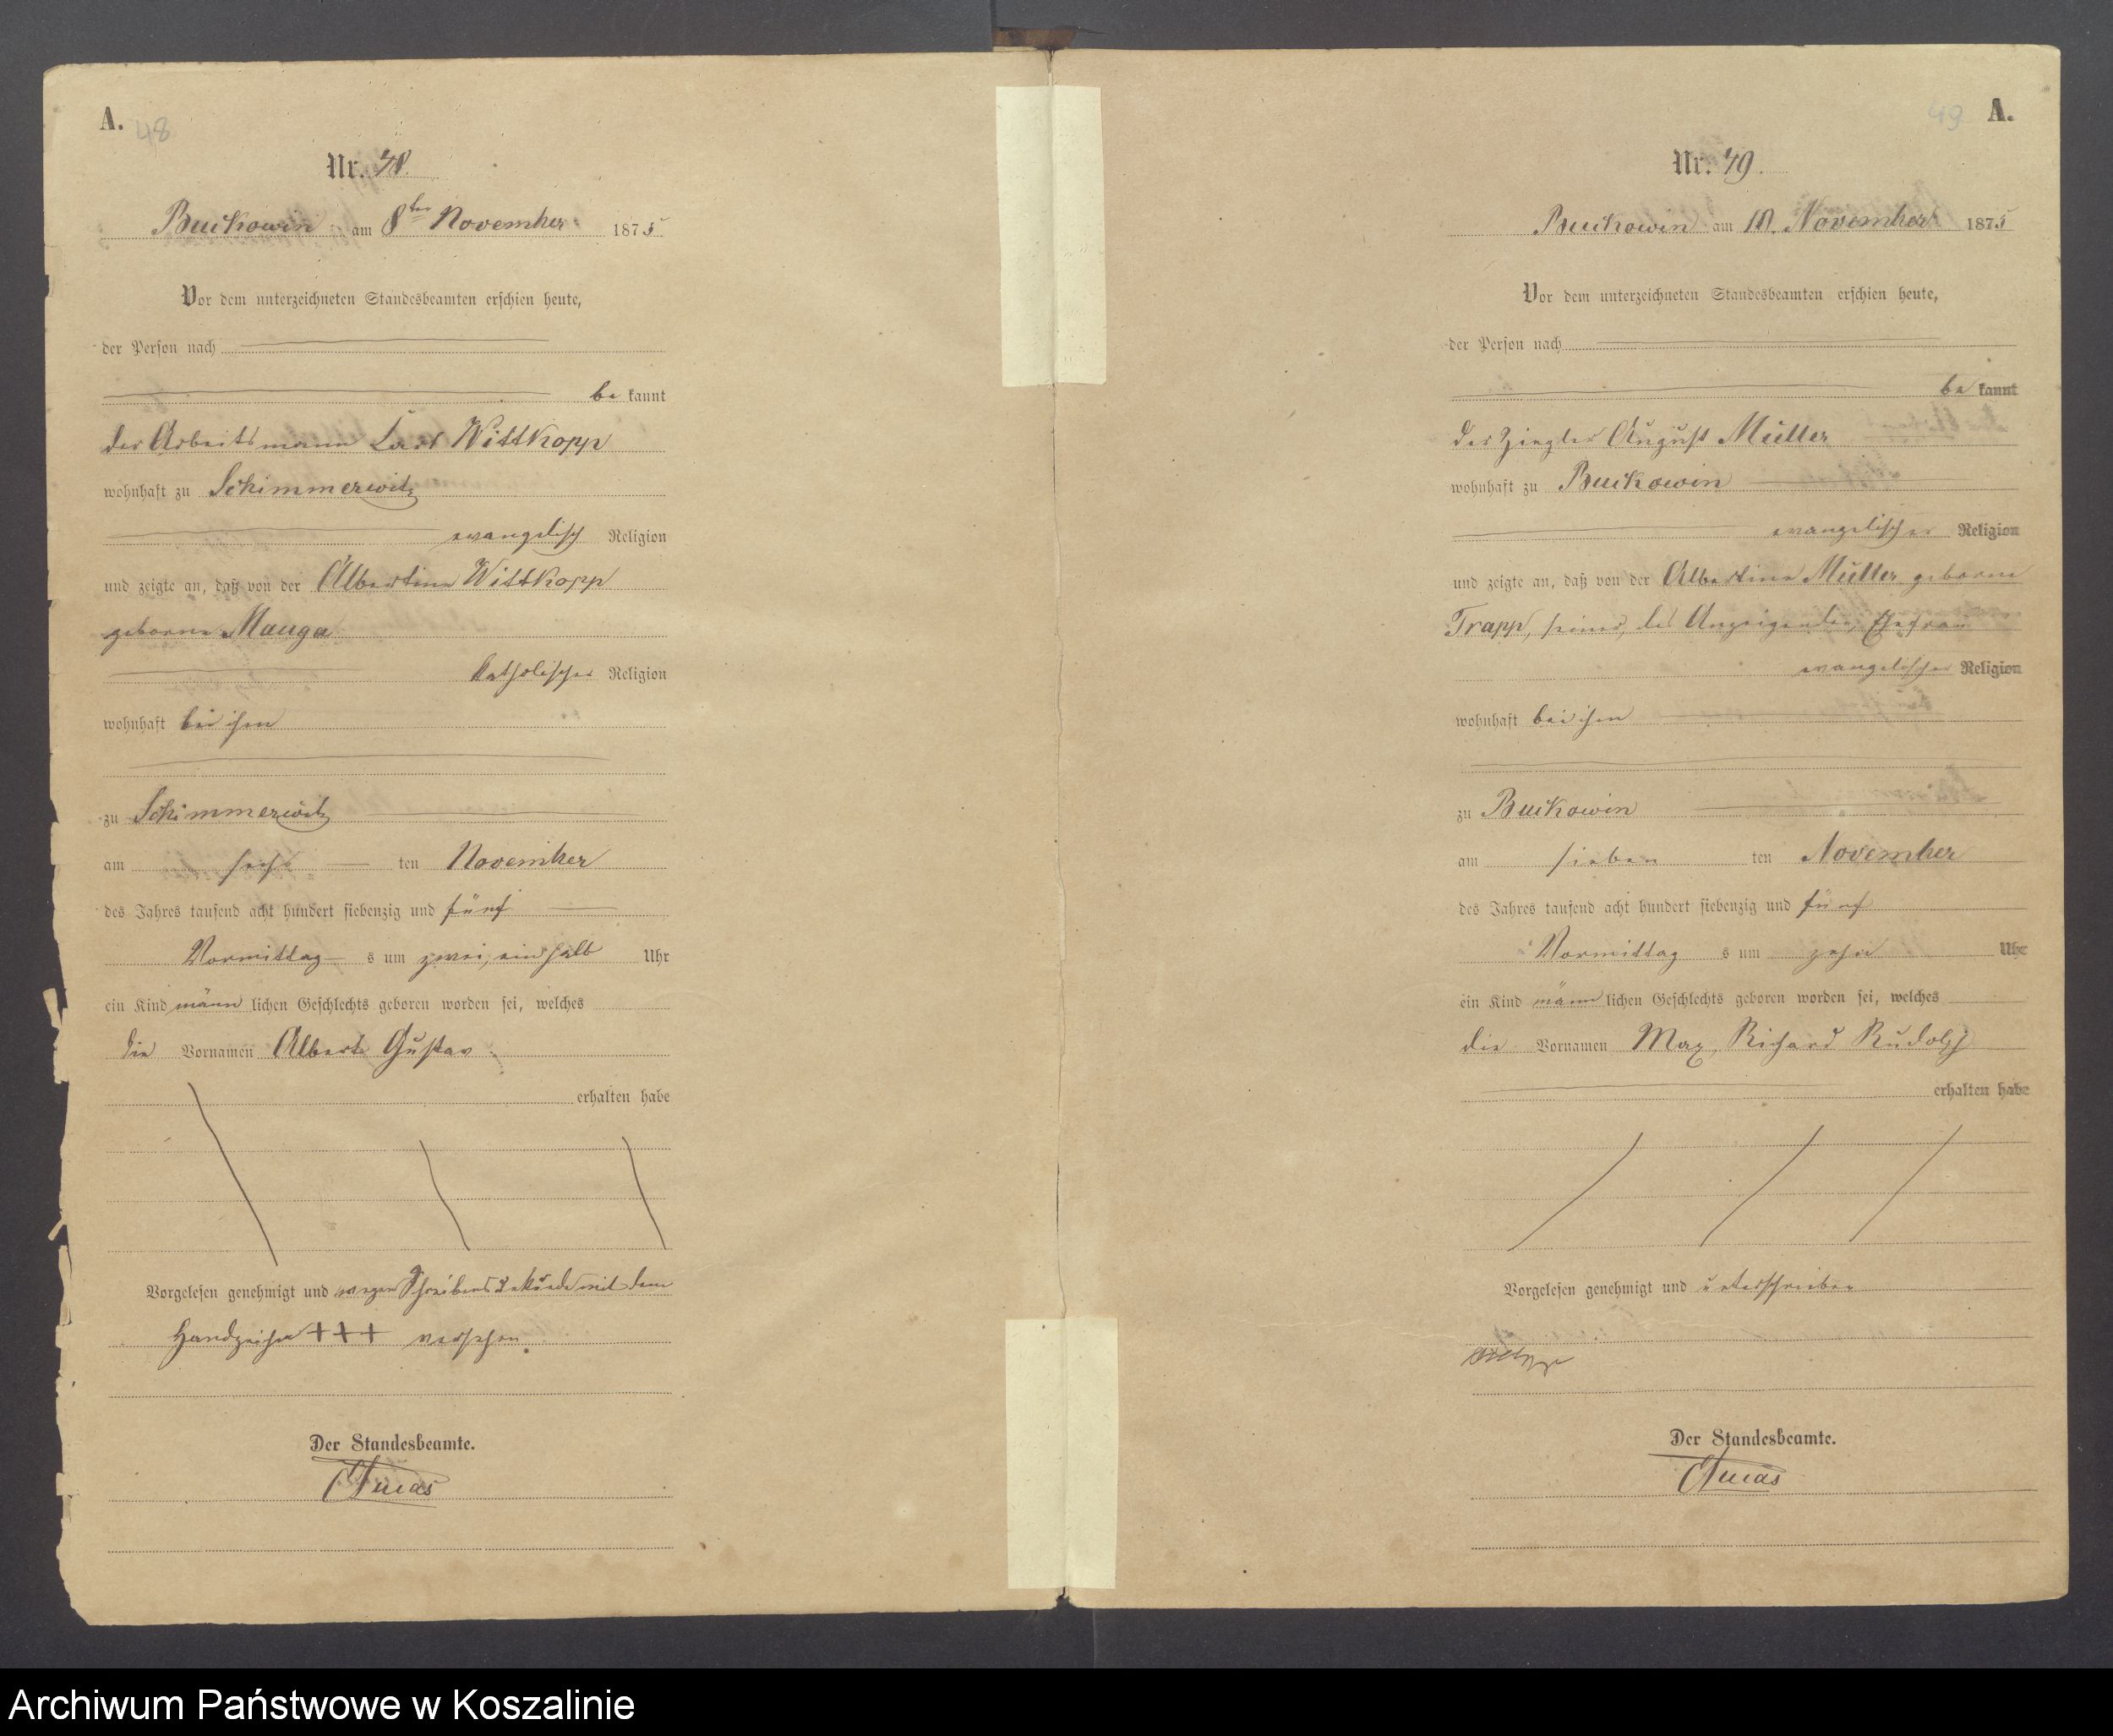 A. 48
Nr. 48.
Buckowin am 8ten November 1875
Vor dem unterzeichneten Standesbeamten erschien heute,
der Person nach
be kannt
der Arbeitsmann Carl Wittkopp
wohnhaft zu Schimmerwitz
evangelisch Religion
und zeigte an, daß von der Albertine Wittkopp
geborne Mauga
katholischer Religion
wohnhaft bei ihm
zu Schimmerwitz
am sechs ten November
des Jahres tausend acht hundert siebenzig und fünf
Vormittag s um zwei, ein halb Uhr
ein Kind männ lichen Geschlechts geboren worden sei, welches
die Vornamen Albert Gustav
erhalten habe
Vorgelesen genehmigt und wegen Schreibens mit dem
Handzeichen +++ versehen.
Der Standesbeamte.
Lucas
49 A.
Nr. 49.
Buckowin am 10. November 1875
Vor dem unterzeichneten Standesbeamten erschien heute,
der Person nach
be kannt
der Ziegler August Müller
wohnhaft zu Buckowin
evangelischer Religion
und zeigte an, daß von der Albertine Müller geborne
Trapp, seiner, des Anzeigenden Ehefrau
evangelischer Religion
wohnhaft bei ihm
zu Buckowin
am sieben ten November
des Jahres tausend acht hundert siebenzig und fünf
Vormittag s um zehn Uhr
ein Kind männ lichen Geschlechts geboren worden sei, welches
die Vornamen Max, Richard Rudolph
erhalten habe
Vorgelesen genehmigt und unterschrieben
Der Standesbeamte.
Lucas
Archiwum Państwowe w Koszalinie